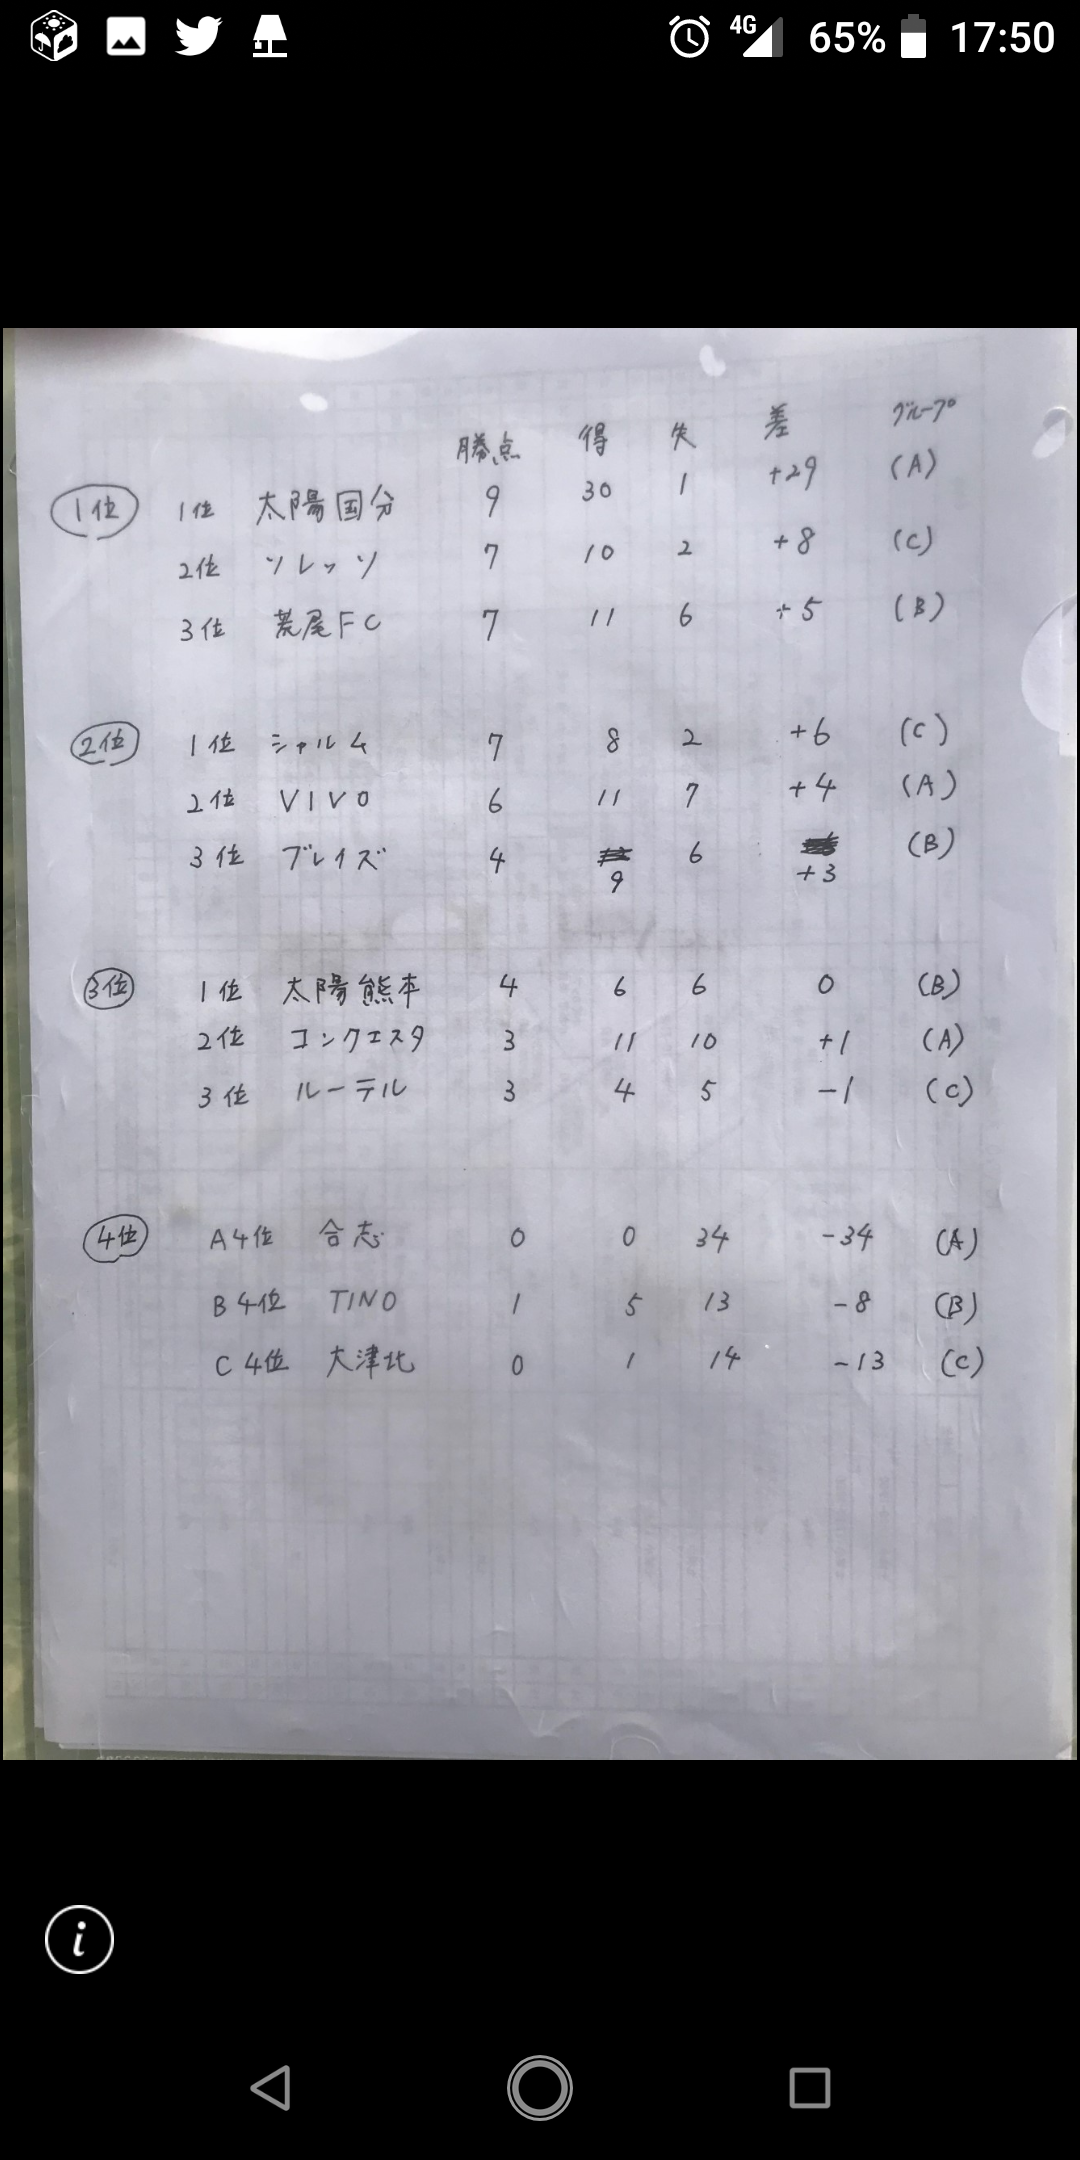 4G 65% 17:50
勝点 得 失 差 グループ
1位 1位 太陽国分 9 30 1 +29 (A)
2位 ソレッソ 7 10 2 +8 (C)
3位 荒尾FC 7 11 6 +5 (B)
2位 1位 シャルム 7 8 2 +6 (C)
2位 VIVO 6 11 7 +4 (A)
3位 ブレイズ 4 9 6 +3 (B)
3位 1位 太陽熊本 4 6 6 0 (B)
2位 コンクエスタ 3 11 10 +1 (A)
3位 ルーテル 3 4 5 -1 (C)
4位 A4位 合志 0 0 34 -34 (A)
B4位 TINO 1 5 13 -8 (B)
C4位 大津北 0 1 14 -13 (C)